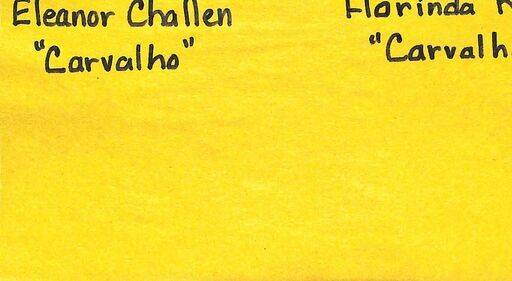 Eleanor Challen
"Carvalho"
Florinda
"Carvalh